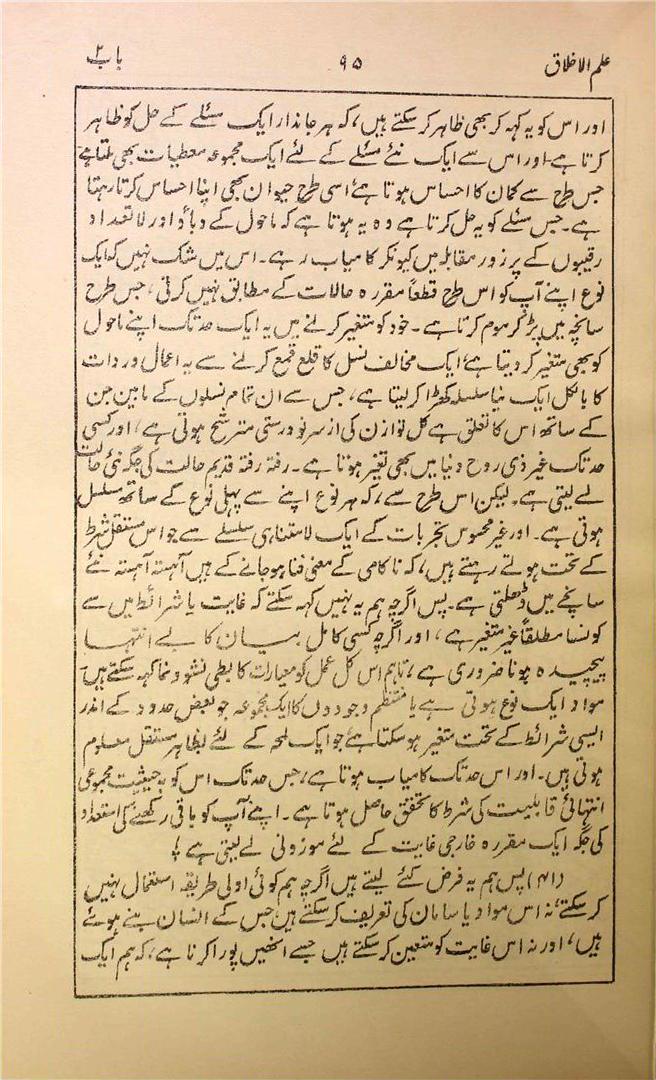 علم الاخلاق ۹۵ باب ۲
اور اس کو یہ کہہ کر بھی ظاہر کر سکتے ہیں، کہ ہر جاندار ایک مسئلے کے حل کو ظاہر
کرتا ہے۔ اور اس سے ایک نئے مسئلے کے لئے ایک مجموعہ معطیات بھی ملتا ہے
جس طرح سے کمان کا احساس ہوتا ہے، اسی طرح حیوان بھی اپنا احساس کرتا رہتا
ہے۔ جس مسئلے کو یہ حل کرتا ہے وہ یہ ہوتا ہے کہ ماحول کے دباؤ اور لا تعداد
رقیبوں کے پر زور مقابلہ میں کیونکر کامیاب رہے۔ اس میں شک نہیں کہ ایک
نوع اپنے آپ کو اس طرح قطعاً مقررہ حالات کے مطابق نہیں کرتی، جس طرح
سانچہ میں پڑ کر موم کرتا ہے۔ خود کو متغیر کرنے میں یہ ایک حد تک اپنے ماحول
کو بھی متغیر کر دیتا ہے، ایک مخالف نسل کا قلع قمع کرنے سے یہ اعمال و ردات
کا بالکل ایک نیا سلسلہ کھڑا کر لیتا ہے، جس سے ان تمام نسلوں کے مابین جن
کے ساتھ اس کا تعلق ہے کل توازن کی از سر نو درستی مترشح ہوتی ہے، اور کسی
حد تک غیر ذی روح دنیا میں بھی تغیر ہوتا ہے۔ رفتہ رفتہ قدیم حالت کی جگہ نئی حالت
لے لیتی ہے۔ لیکن اس طرح سے، کہ ہر نوع اپنے سے پہلی نوع کے ساتھ مسلسل
ہوتی ہے۔ اور غیر محسوس تجربات کے ایک لامتناہی سلسلے سے جو اس مستقل شرط
کے تحت ہوتے رہتے ہیں، کہ ناکامی کے معنی فنا ہو جانے کے ہیں آہستہ آہستہ نئے
سانچے میں ڈھلتی ہے۔ پس اگرچہ ہم یہ نہیں کہہ سکتے کہ غایت یا شرائط میں سے
کونسا مطلقاً غیر متغیر ہے، اور اگرچہ کسی کامل بیان کا بے انتہا
پیچیدہ ہونا ضروری ہے، تاہم اس کل عمل کو معیارات کا بطی نشو و نما کہہ سکتے ہیں۔
مواد ایک نوع ہوتی ہے یا منتظم وجودوں کا ایک مجموعہ جو بعض حدود کے اندر
ایسی شرائط کے تحت متغیر ہو سکتا ہے جو ایک لمحہ کے لئے بظاہر مستقل معلوم
ہوتی ہیں۔ اور اس حد تک کامیاب ہوتا ہے، جس حد تک اس کو بہ حیثیت مجموعی
انتہائی قابلیت کی شرط کا تحقق حاصل ہوتا ہے۔ اپنے آپ کو باقی رکھنے کی استعداد
کی جگہ ایک مقررہ خارجی غایت کے لئے موزونی لے لیتی ہے۔
پس ہم یہ فرض کئے لیتے ہیں اگرچہ ہم کوئی اولی طریقہ استعمال نہیں
کر سکتے، نہ اس مواد یا سامان کی تعریف کر سکتے ہیں جس کے انسان بنے ہوئے
ہیں، اور نہ اس غایت کو متعین کر سکتے ہیں جسے انھیں پورا کرنا ہے، کہ ہم ایک